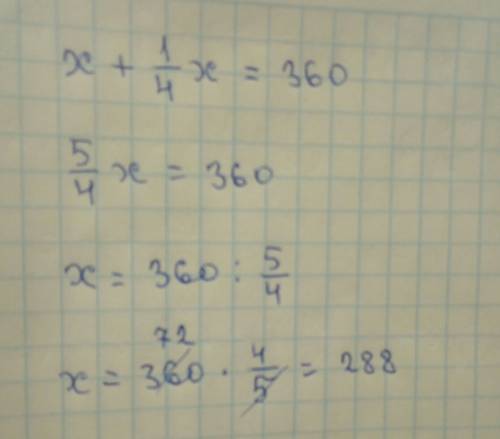 x + 1/4 x = 360
5/4 x = 360
x = 360 : 5/4
72
x = 360 · 4/5 = 288